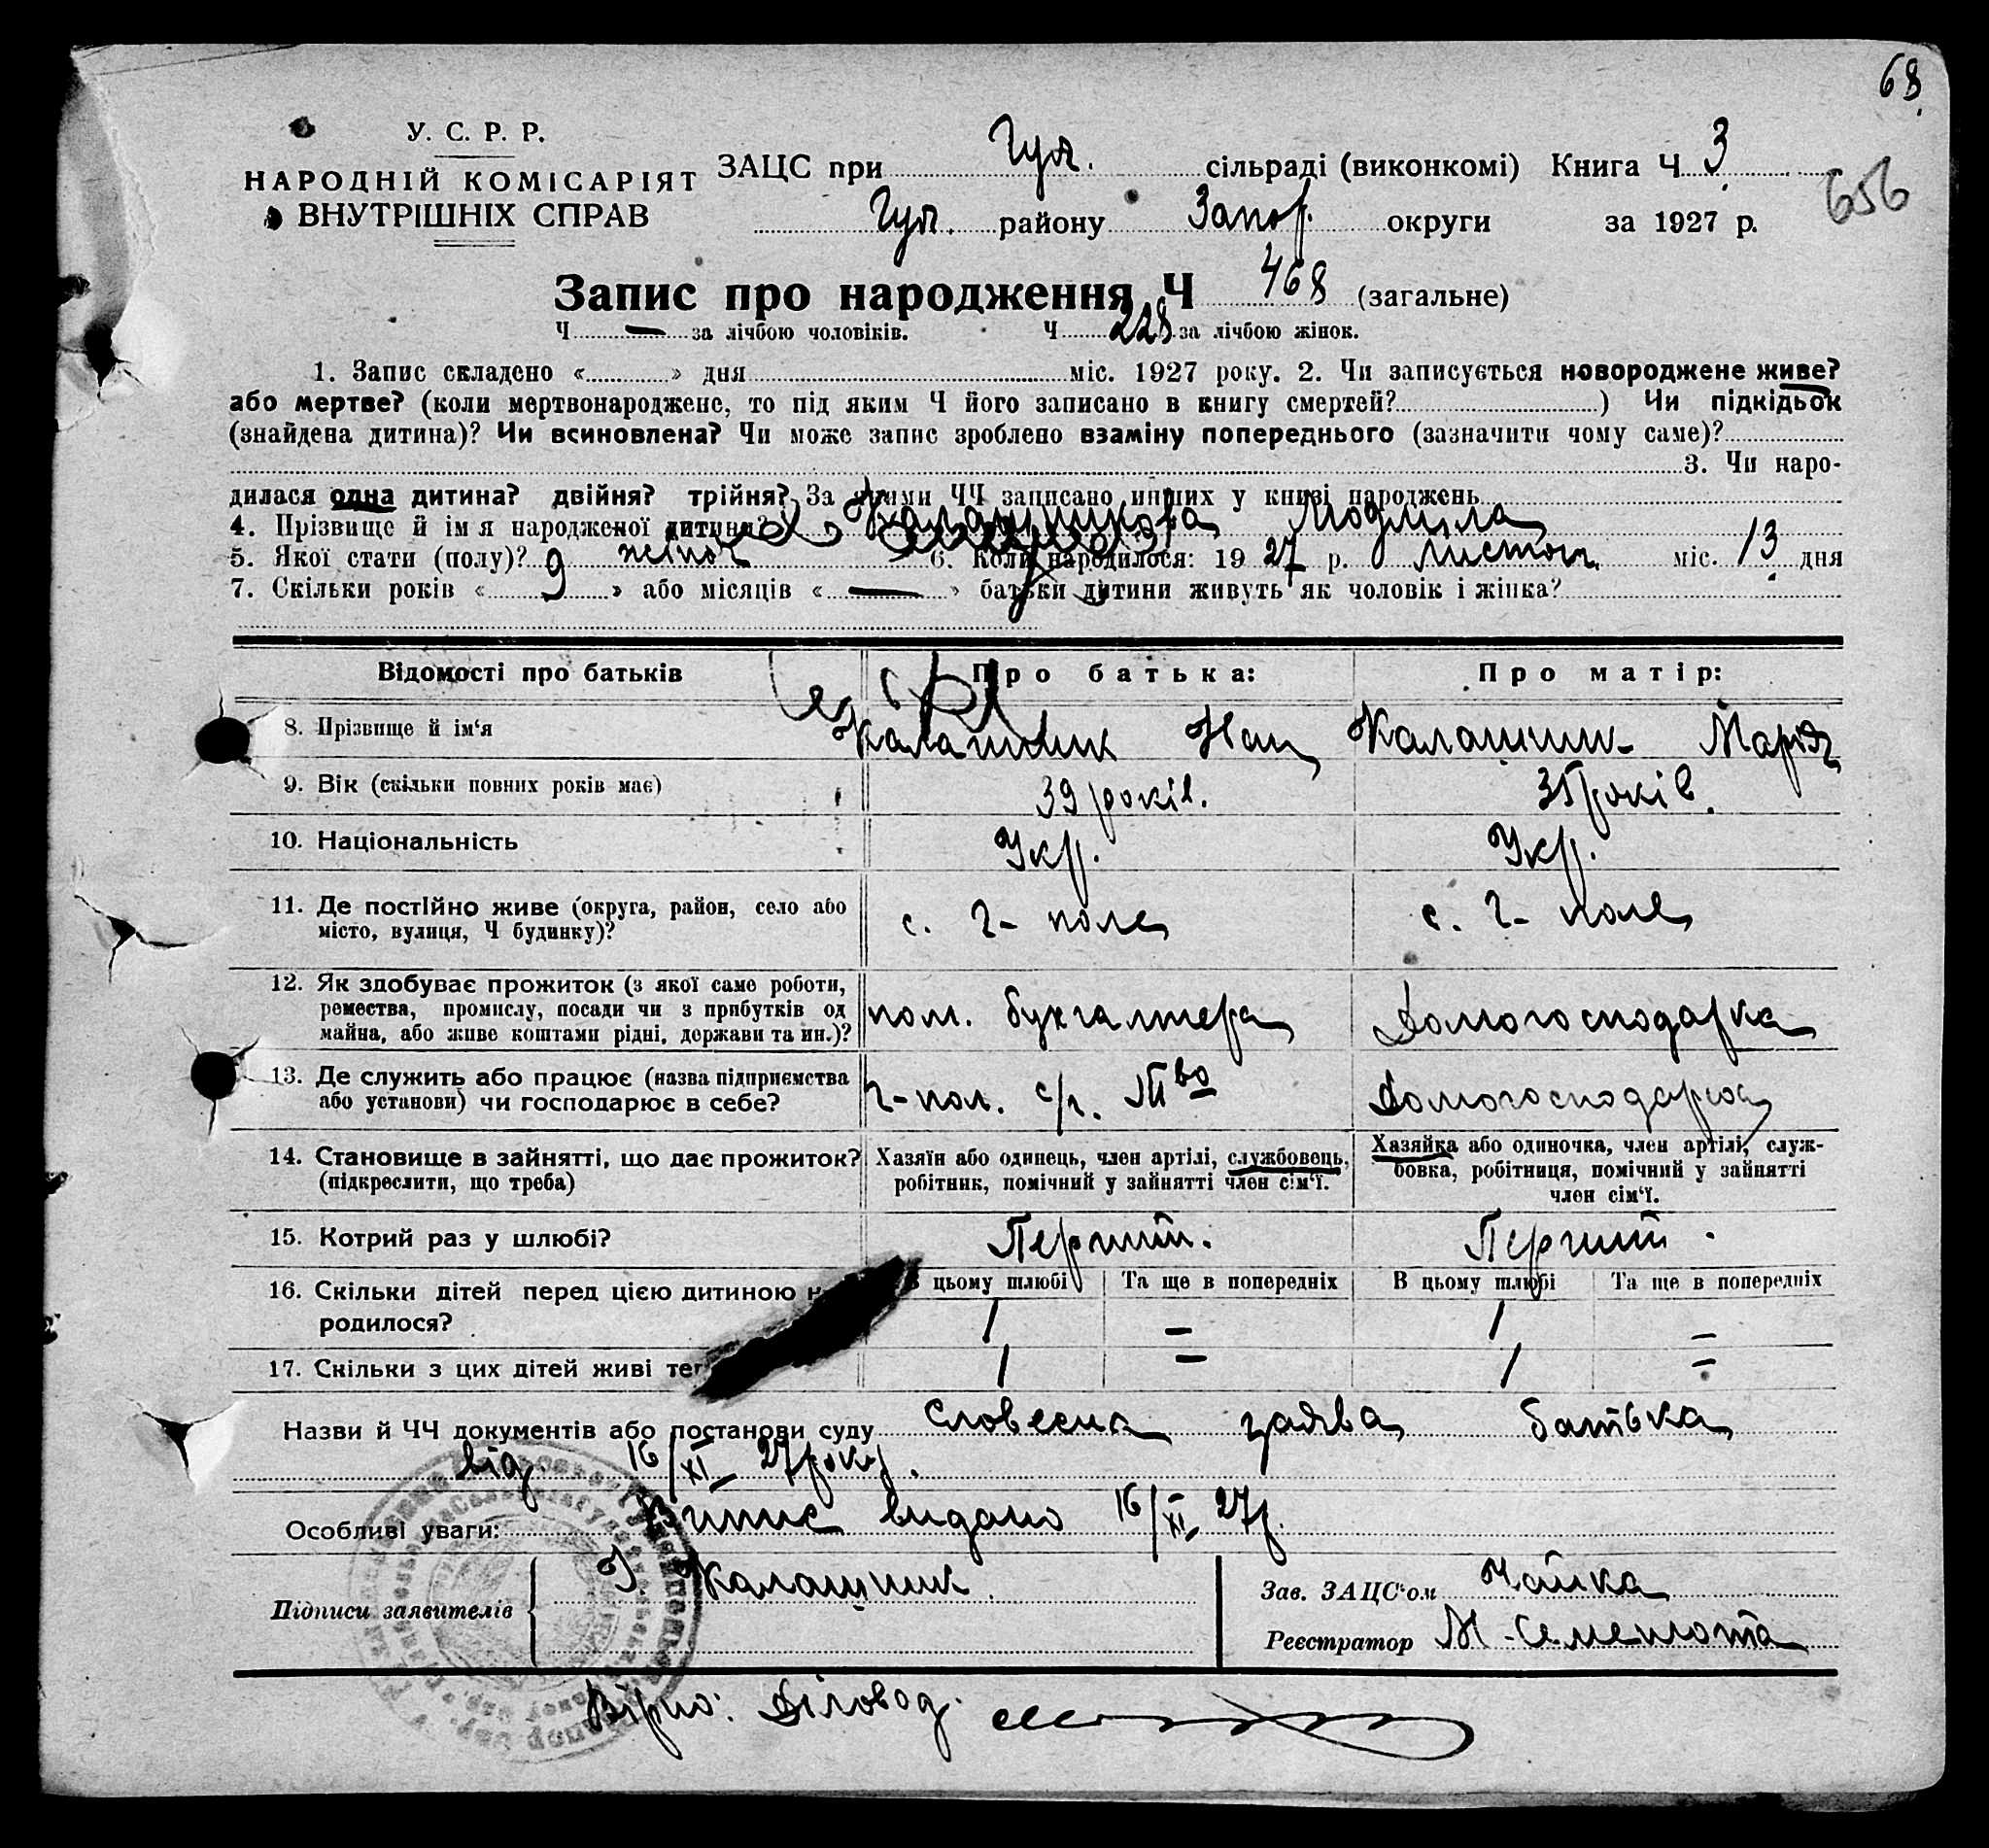 68
У. С. Р. Р.
НАРОДНІЙ КОМІСАРІЯТ
ВНУТРІШНІХ СПРАВ
ЗАЦС при Гул. сільраді (виконкомі) Книга Ч 3
656
Гул. району Запор. округи за 1927 р.
Запис про народження Ч 468 (загальне)
Ч — за лічбою чоловіків. Ч 228 за лічбою жінок.
1. Запис складено «» дня міс. 1927 року. 2. Чи записується новороджене живе?
або мертве? (коли мертвонароджене, то під яким Ч його записано в книгу смертей?) Чи підкідьок
(знайдена дитина)? Чи всиновлена? Чи може запис зроблено взаміну попереднього (зазначити чому саме)?
3. Чи наро-
дилася одна дитина? двійня? трійня? За якими ЧЧ записано инших у книзі народжень
4. Прізвище й ім'я народженої дитини? Калашникова Людмила
5. Якої стати (полу)? жіноч 6. Коли народилося: 1927 р. листоп. міс. 13 дня
7. Скільки років «9» або місяців «—» батьки дитини живуть як чоловік і жінка?
Відомості про батьків Про батька: Про матір:
8. Прізвище й ім'я Калашник Калашник Марія
9. Вік (скільки повних років має) 39 років. 35 років.
10. Національність Укр. Укр.
11. Де постійно живе (округа, район, село або с. Г-поле с. Г-поле
місто, вулиця, Ч будинку)?
12. Як здобуває прожиток (з якої саме роботи,
ремества, промислу, посади чи з прибутків од пом. бухгалтера Домогосподарка
майна, або живе коштами рідні, держави та ин.)?
13. Де служить або працює (назва підприємства Г-пол. с/г. Т-во Домогосподарка
або установи) чи господарює в себе?
14. Становище в зайнятті, що дає прожиток? Хазяїн або одинець, член артілі, службовець, Хазяйка або одиночка, член артілі, служ-
(підкреслити, що треба) робітник, помічний у зайнятті член сім'ї. бовка, робітниця, помічний у зайнятті
член сім'ї.
15. Котрий раз у шлюбі? Перший. Перший.
16. Скільки дітей перед цією дитиною В цьому шлюбі Та ще в попередніх В цьому шлюбі Та ще в попередніх
родилося? 1 – 1 –
17. Скільки з цих дітей живі 1 – 1 –
Назви й ЧЧ документів або постанови суду словесна заява батька
від 16/XI 27 року.
Особливі уваги: Витис видано 16/XI 27р.
Підписи заявителів Калашник. Зав. ЗАЦС'ом Чайка
Реєстратор
Вірно: Діловод.